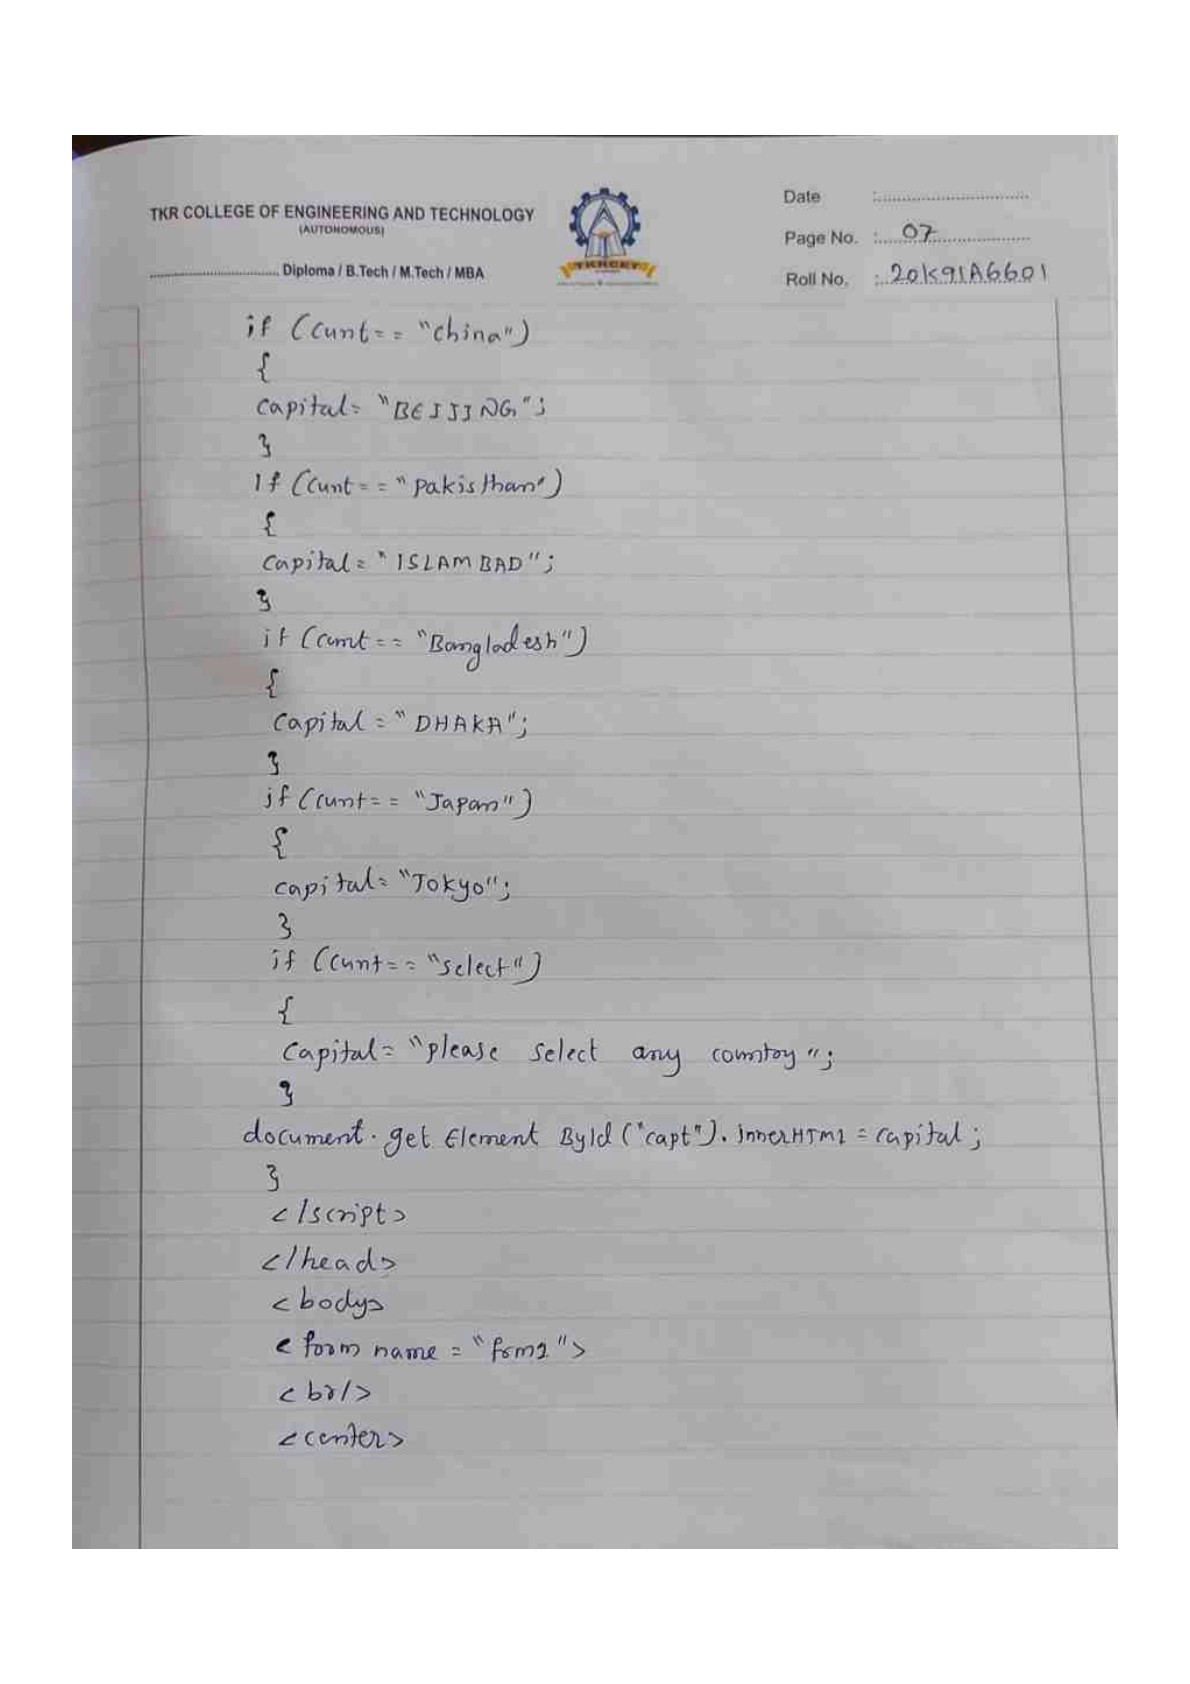 TKR COLLEGE OF ENGINEERING AND TECHNOLOGY
(AUTONOMOUS)
Diploma / B.Tech / M.Tech / MBA
TKRCET
Date :
Page No. : 07
Roll No. : 20K91A6601
if (cunt== "china")
{
capital= "BEIJING";
}
if (cunt== "pakisthan")
{
capital= "ISLAMBAD";
}
if (cunt== "Bangladesh")
{
capital = "DHAKA";
}
if (cunt== "Japan")
{
capital= "Tokyo";
}
if (cunt== "select")
{
capital= "please select any country";
}
document.get Element ById ("capt"). innerHTML = capital;
}
</script>
</head>
<body>
<form name = "frm1">
<br/>
<center>